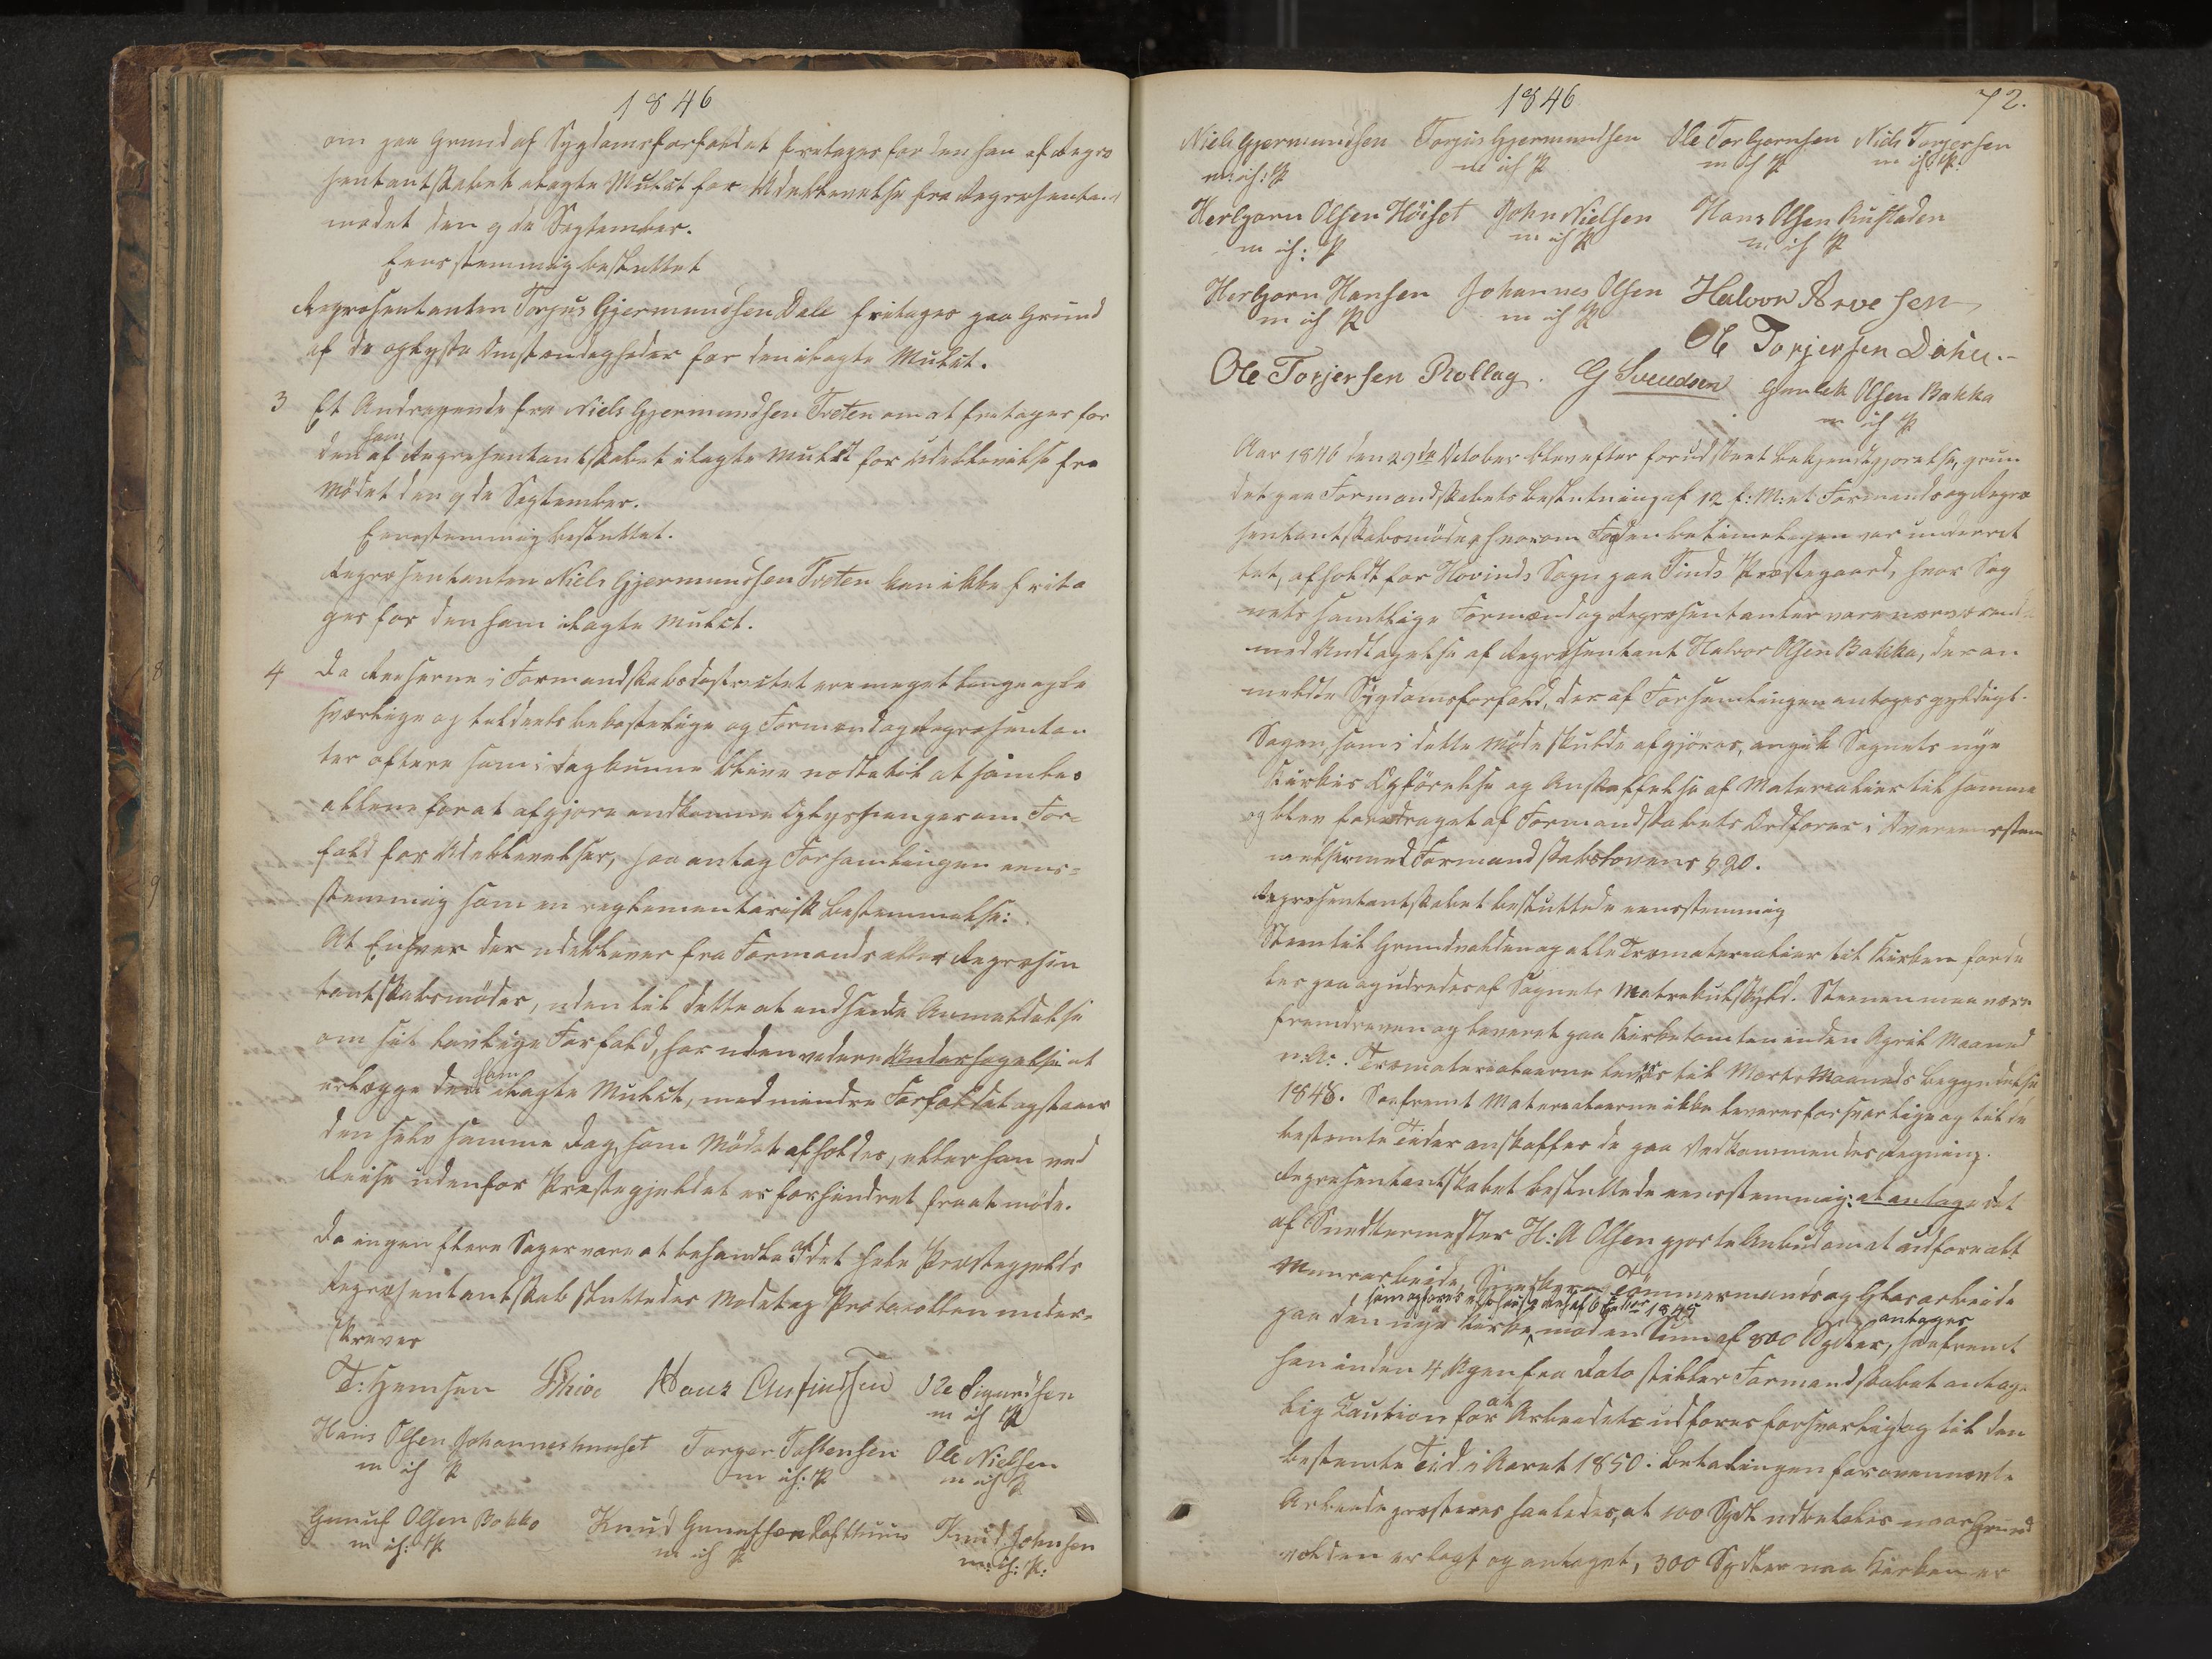 1846
om paa Grund af Sygdomsforfaldet fritages for den ham af Repræ
sentantskabet ilagte Mulct for Udeblivelse fra Repræsentant
mødet den 9de September.
Eensstemmig besluttet
Repræsentanten Torjus Gjermundsen Dale fritages paa Grund
af de oplyste Omstændigheder for den ilagte Mulct.
3 Et Andragende fra Niels Gjermundsen Tveten om at fritages for
den ham af Repræsentantskabet ilagte Mulct for Udeblivelse fra
Mødet den 9de September.
Eensstemmig besluttet.
Repræsentanten Niels Gjermundsen Tveten kan ikke frita
ges for den ham ilagte Mulct.
4 Da Reiserne i Formandskabsdistrictet ere meget lange
sværlige og tildeels bekostelige og Formænd og Repræsentan
ter oftere som i Dag kunne blive nødte til at samles
allene for at afgjøre indkomne Oplysninger om For=
fald for Udeblivelser, saa antog Forsamlingen eens=
stemmig som en reglementarisk Bestemmelse:
At Enhver der udebliver fra Formands eller Repræsen
tantskabsmøder, uden til dette at indsende Anmeldelse
om sit lovlige Forfald, har uden videre Undersøgelse at
erlægge den ham ilagte Mulct, medmindre Forfaldet opstaaer
den selv samme Dag, som Mødet afholdes, eller han ved
Reise udenfor Præstegjeldet er forhindret fra at møde.
Da ingen flere Sager vare at behandle af det hele Præstegjelds
Repræsentantskab sluttedes Mødet og Protocollen under=
skreves
T: Hemsen Hans Austindsen Ole Sigurdsen
m ih P
Hans Olsen Johanneshuuset Torger Tostensen Ole Nielsen
m ih P m ih: P m ih P
Gunuf Olsen Bakko Knud Gunufsen Lofthuus Knud Johnsen
m ih: P m ih P m: ih: P:
1846 72.
Niels Gjermundsen Torjus Gjermundsen Ole Torbjørnsen Niels Torjersen
m: ih: P m ih P m ih P m ih: P.
Herbjørn Olsen Høiset John Nielsen Hans Olsen Rustaden
m ih: P m ih P m ih P
Herbjørn Hansen Johannes Olsen Halvor Arvesen
m ih P m ih P
Ole Torjersen Dahle.
Ole Torjersen Rollag. G Svendsen Gunlek Olsen Bakka
m ih P
Aar 1846 den 29de October blev efter forud skeet Bekjendtgjørelse, grun
det paa Formandskabets Beslutning af 12 f: M: et Formands og Repræ
sentantskabsmøde, hvorom Fogden betimeligen var underret
tet, afholdt for Hovinds Sogn paa Tinds Præstegaard, hvor Sog
nets samtlige Formænd og Repræsentanter vare nærværende
med Undtagelse af Repræsentant Halvor Olsen Bakka, der an
meldte Sygdomsforfald, der af Forsamlingen antoges gyldigt.
Sagen, som i dette Møde skulde afgjøres, angik Sognets nye
Kirkes Opførelse og Anskaffelse af Materialier til samme
og blev foredraget af Formandskabets Ordfører i Overeensstem
melse med Formandskabslovens § 20.
Repræsentantskabet besluttede eensstemmig
Steen til Grundvolden og alle Træmaterialier til Kirken forde
les paa og udredes af Sognets Matrikulskyld. Stenen maa være
fremdreven og leveret paa Kirketomten inden April Maaned
n: A: . Træmaterialierne leveres til Marts Maaneds Begyndelse
1848. Saafremt Materialierne ikke leveres forsvarlige og til de
bestemte Tider anskaffes de paa Vedkommendes Regning.
Repræsentantskabet besluttede eensstemmig: at antage det
af Snedkermester H: A Olsen gjorte Anbud om at udføre alt
Muurarbeide, Tømmermands og Glasarbeide
paa den nye Kirke, mod en Sum af 800 Spdler, antages saafremt
han inden 4 Uger fra Dato stiller Formandskabet antage
lig Caution for at Arbeidet udføres forsvarlig og til den
bestemte Tid i Aaret 1850. Betalingen for ovennævnte
Arbeide præsteres saaledes, at 100 Spdl udbetales naar Grund
volden er lagt og antaget, 300 Spdler naar Kirken er